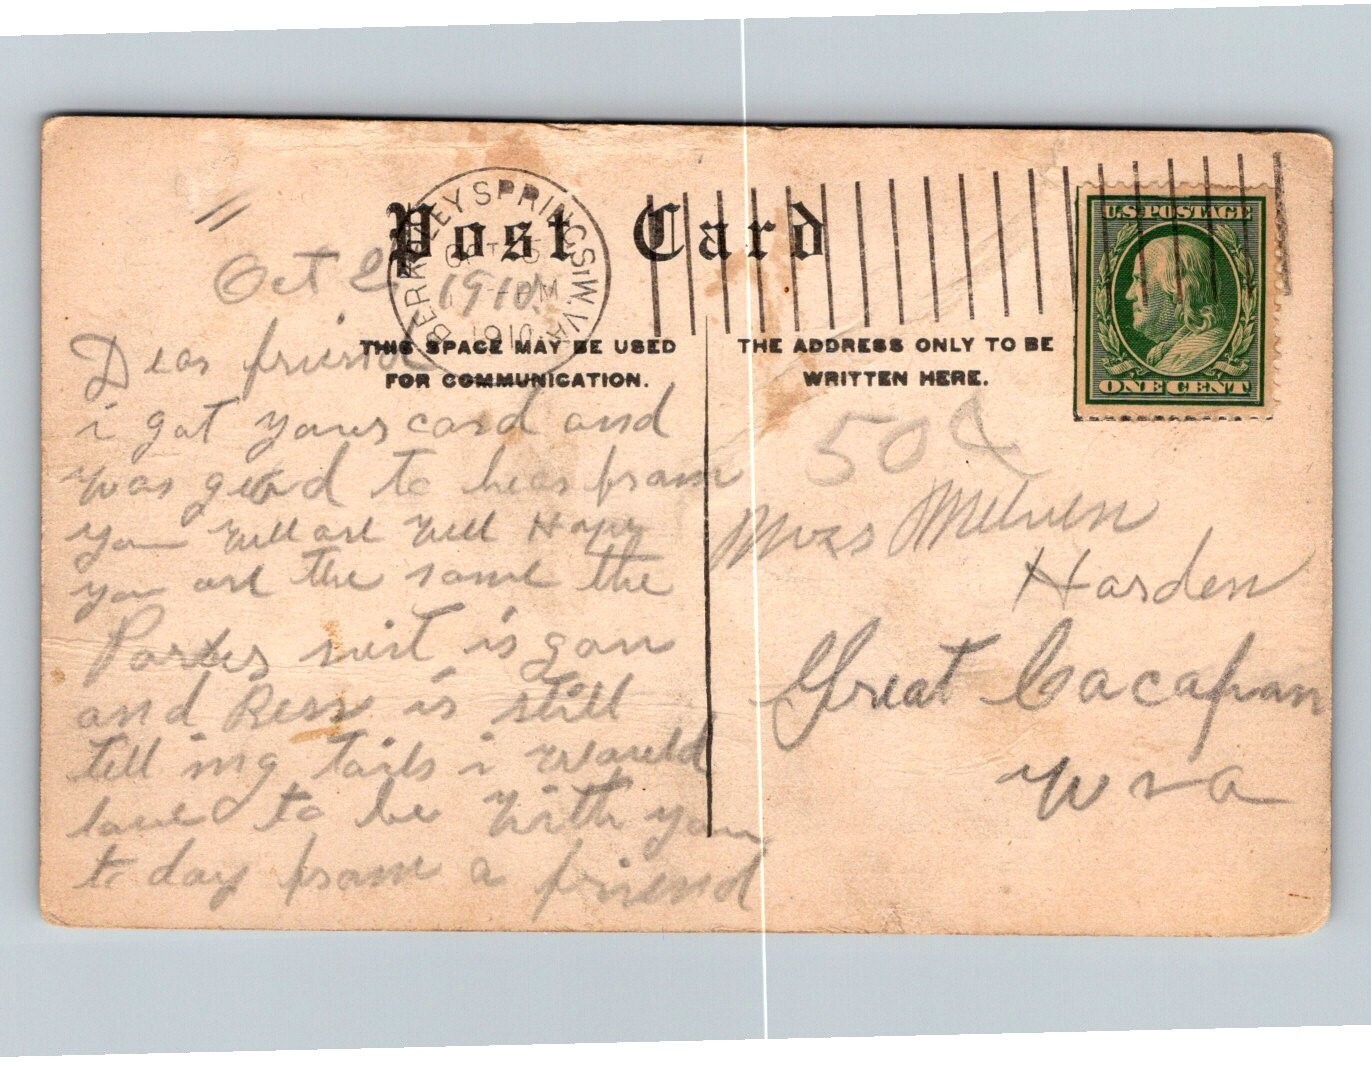 Post Card
BERKELEY SPRINGS, W.VA.
OCT
PM
1910
U.S. POSTAGE
ONE CENT
THIS SPACE MAY BE USED
FOR COMMUNICATION.
THE ADDRESS ONLY TO BE
WRITTEN HERE.
Oct
1910
Dear friend
i got yours card and
was glad to hear fram
you well Hope
you are the same the
is gan
and Bess is still
tell ing tails i would
love to be with you
to day fram a friend
50¢
Miss
Harden
Great Cacapan
W va